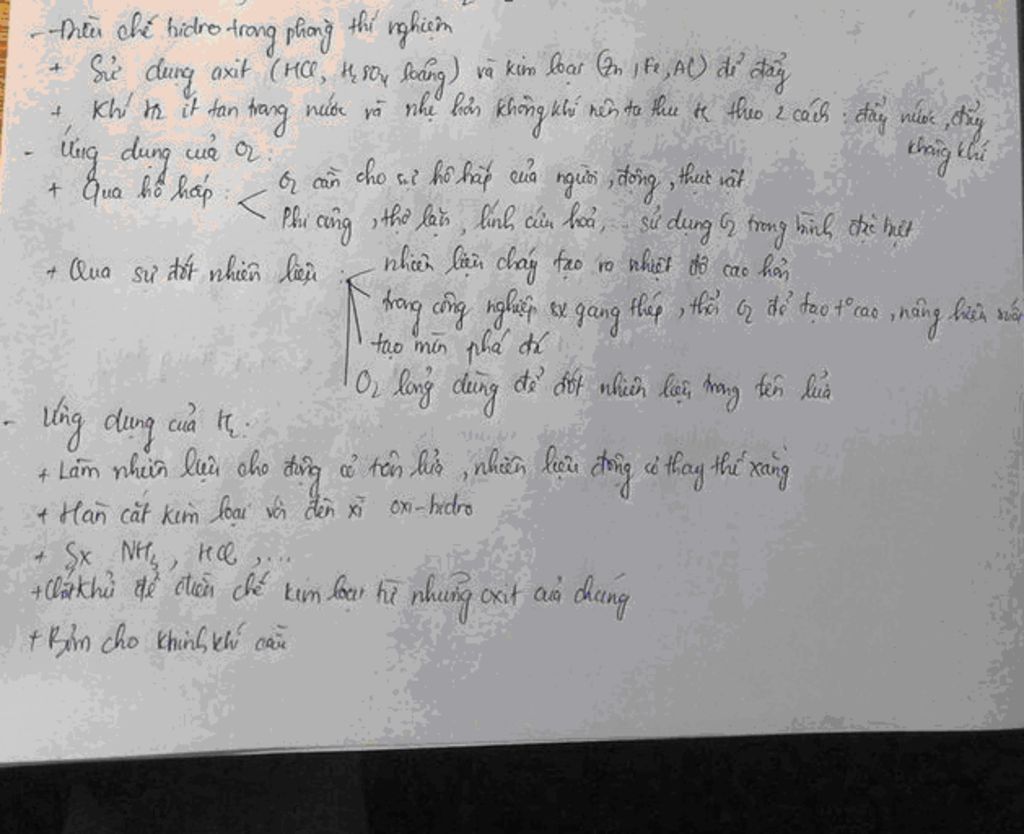 - Điều chế hidro trong phòng thí nghiệm
+ Sử dụng axit (HCl, H2SO4 loãng) và kim loại (Zn, Fe, Al) để đẩy
+ Khí H2 ít tan trong nước và nhẹ hơn không khí nên ta thu H2 theo 2 cách: đẩy nước, đẩy
không khí
- Ứng dụng của O2:
+ Qua hô hấp: O2 cần cho sự hô hấp của người, động, thực vật
Phi công, thợ lặn, lính cứu hoả,... sử dụng O2 trong bình đặc biệt
+ Qua sự đốt nhiên liệu: nhiên liệu cháy tạo ra nhiệt độ cao hơn
trong công nghiệp sx gang thép, thổi O2 để tạo t° cao, nâng hiệu suất
tạo mìn phá đá
O2 lỏng dùng để đốt nhiên liệu trong tên lửa
- Ứng dụng của H2:
+ Làm nhiên liệu cho động cơ tên lửa, nhiên liệu động cơ thay thế xăng
+ Hàn cắt kim loại và đèn xì oxi-hidro
+ Sx NH3, HCl,...
+ Chất khử để điều chế kim loại từ những oxit của chúng
+ Bơm cho khinh khí cầu